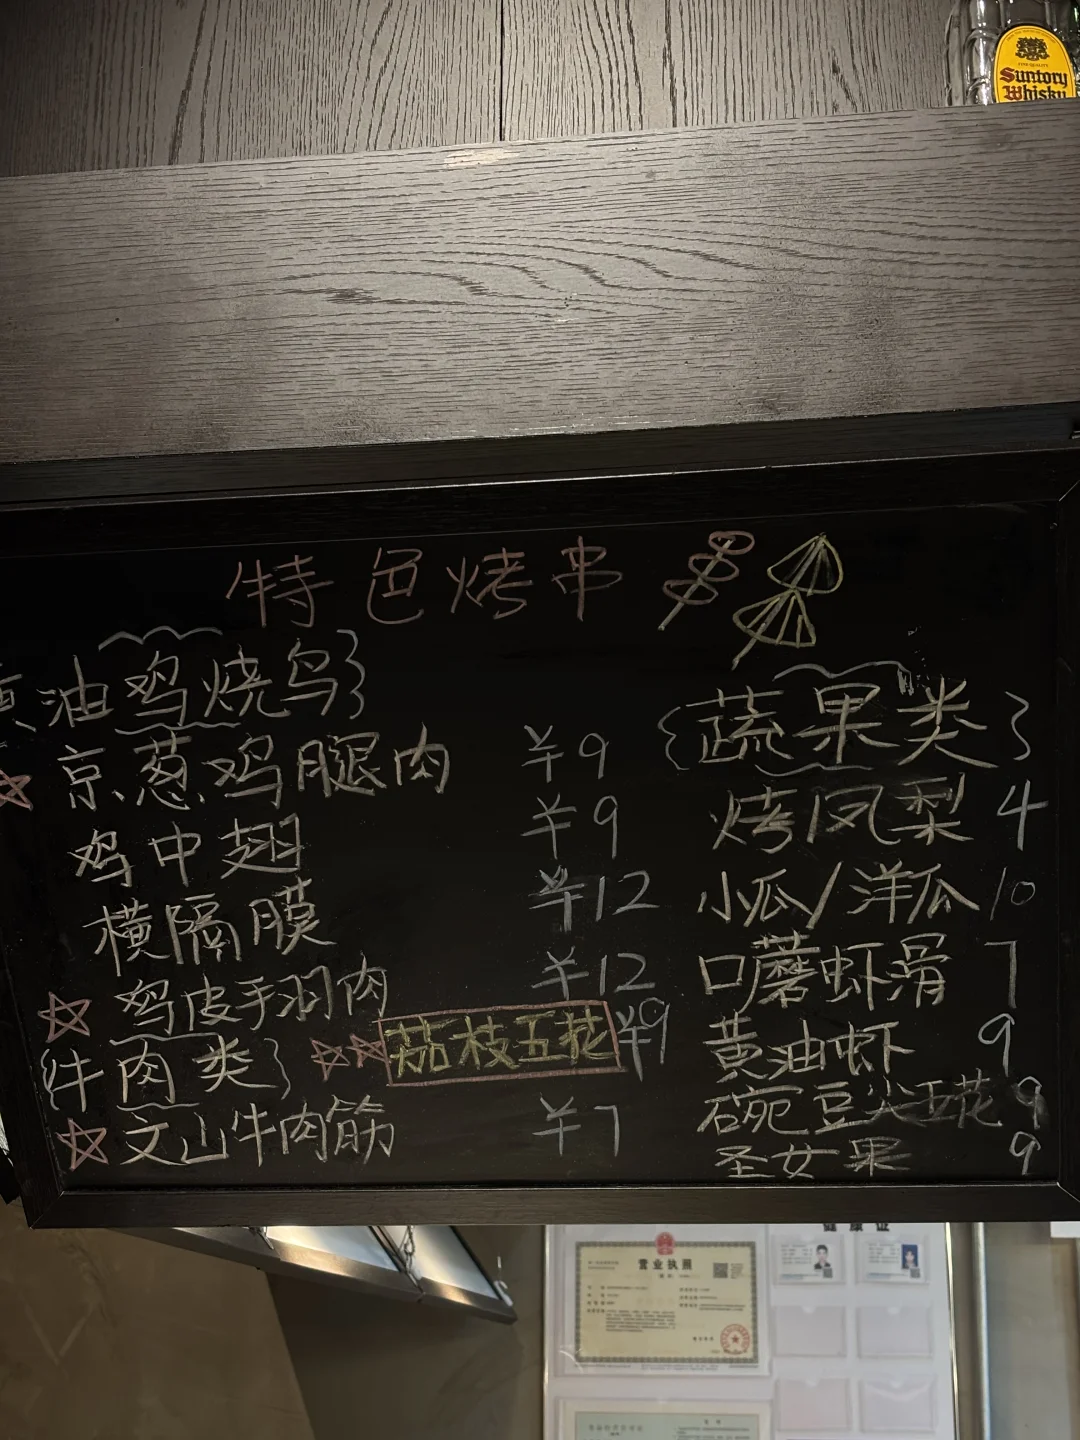 Suntory
Whisky
特色烤串
黄油鸡烧鸟}
京葱鸡腿肉 ¥9
鸡中翅 ¥9
横隔膜 ¥12
鸡皮手羽肉 ¥12
{牛肉类}
荔枝五花 ¥9
文山牛肉筋 ¥7
{蔬果类}
烤凤梨 4
小瓜/洋瓜 10
口蘑虾滑 7
黄油虾 9
豌豆尖五花 9
圣女果 9
健康证
营业执照